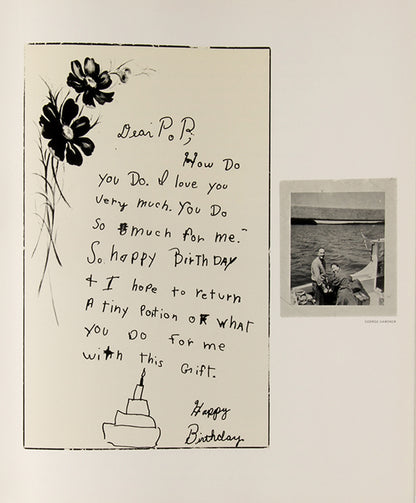 Dear PoP,
How Do
you Do. I love you
very much. You Do
So much for me.
So happy BirthDAY
& I hope to return
A tiny portion of what
you Do for me
with this Gift.
Happy
Birthday